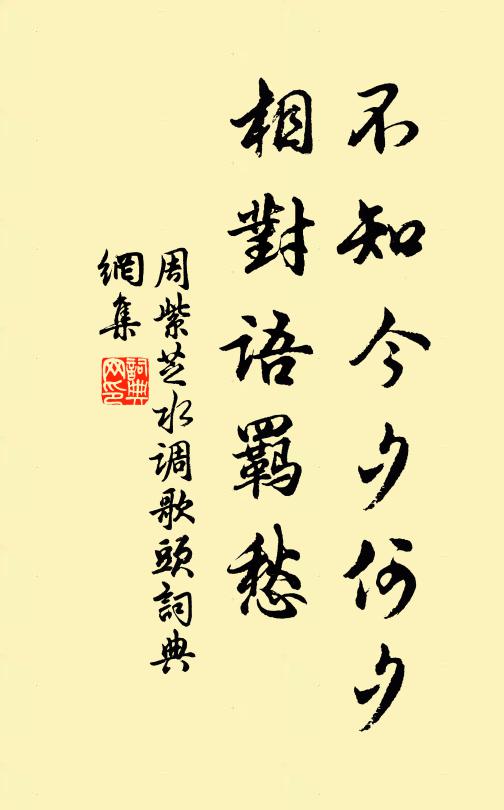 不知今夕何夕
相對語羈愁
周紫芝水调歌頭詞典
網集
詞典
网印